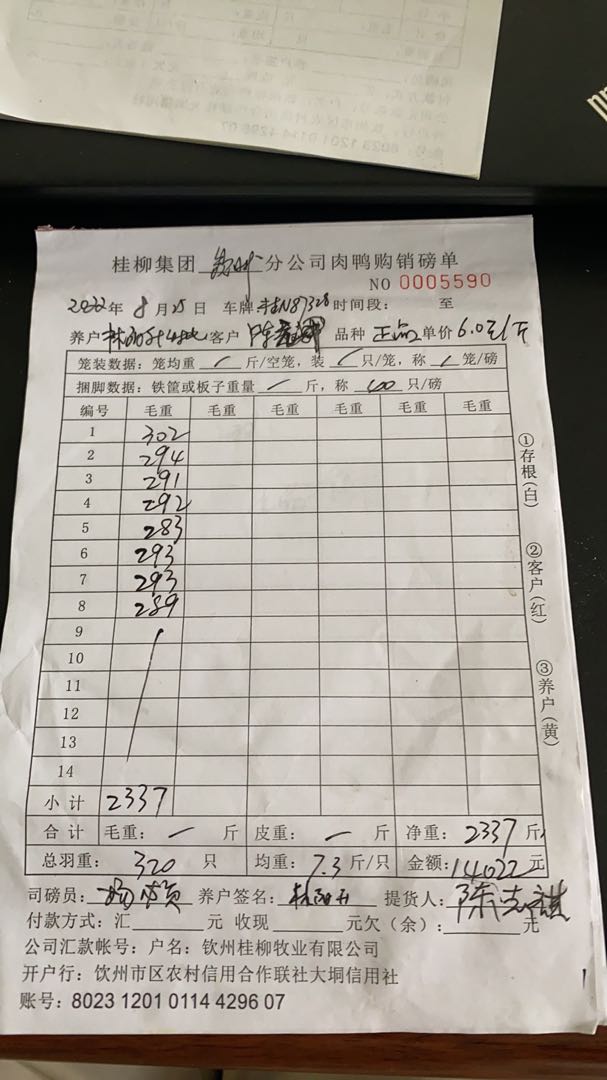 桂柳集团 钦州 分公司肉鸭购销磅单
NO 0005590
2022年 8月25日 车牌 桂N87328 时间段: 至
养户 客户 品种 正品 单价 6.0元/斤
笼装数据:笼均重 / 斤/空笼,装 / 只/笼,称 / 笼/磅
捆脚数据:铁筐或板子重量 / 斤,称 只/磅
编号 毛重 毛重 毛重 毛重 毛重 毛重
1 302
2 294
3 291
4 292
5 283
6 293
7 293
8 289
9
10
11
12
13
14
小计 2337
合计 毛重: / 斤 皮重: / 斤 净重: 2337 斤
总羽重: 320 只 均重: 7.3 斤/只 金额: 14022 元
司磅员: 养户签名: 提货人: 陈志祺
付款方式:汇 元 收现 元欠(余): 元
公司汇款帐号:户名:钦州桂柳牧业有限公司
开户行:饮州市区农村信用合作联社大垌信用社
账号:8023 1201 0114 4296 07
①存根(白)
②客户(红)
③养户(黄)